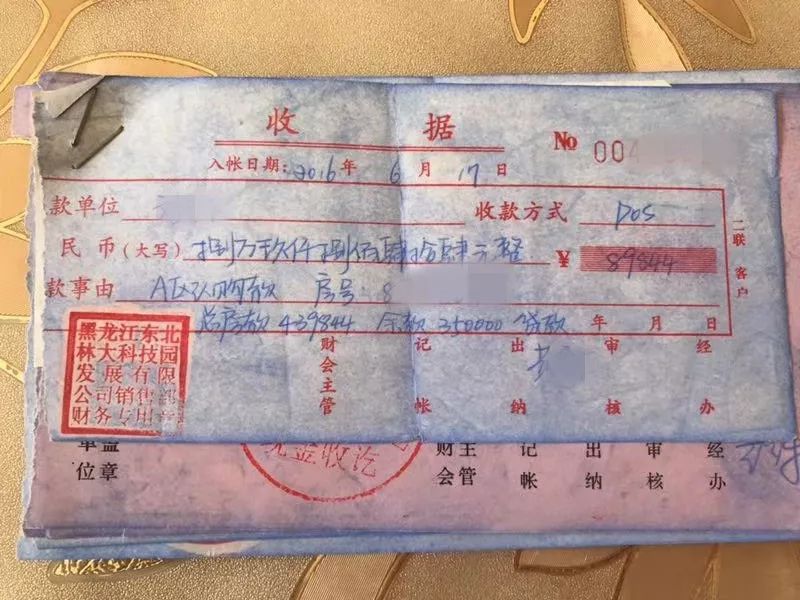 收 据
No 004
入帐日期:2016年 6月 17日
款单位 收款方式 POS
民币(大写)捌万玖仟捌佰肆拾肆元整 ¥ 89844
款事由 A区认购款 房号:8
总房款 439844 余款 350000 贷款 年 月 日
二联 客户
财会主管 记帐 出纳 审核 经办
黑龙江东北
林大科技园
发展有限
公司销售部
财务专用章
现金收讫
单位盖章 财会主管 记帐 出纳 审核 经办